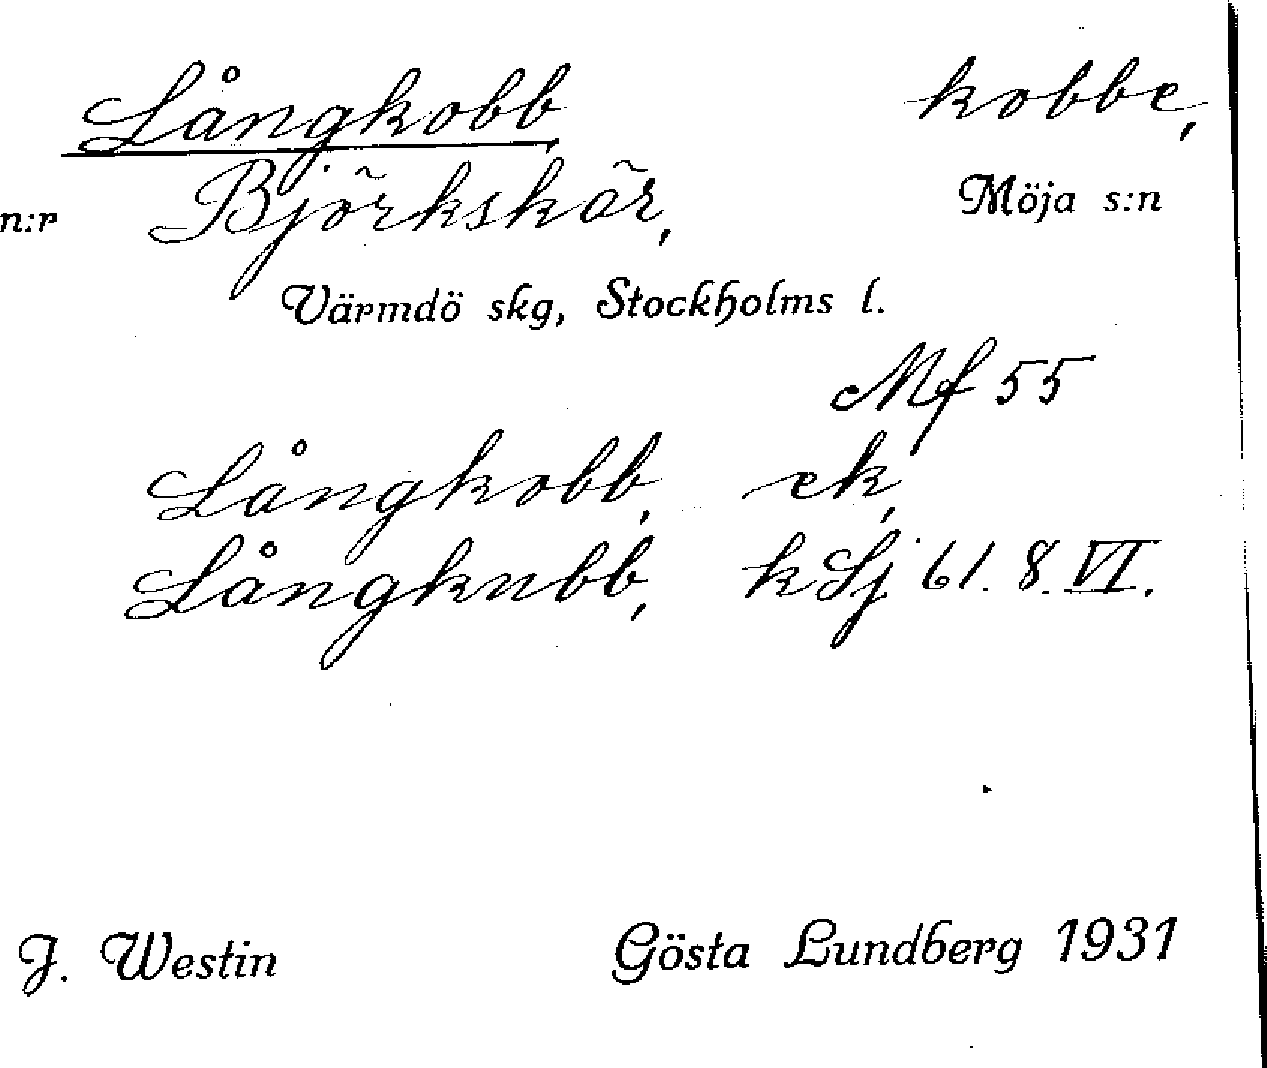 Långkobb, kobbe,
n:r Björkskär, Möja s:n
Värmdö skg, Stockholms l.
Mf 55
Långkobb, ek,
Långknbb, k Sj 61. 8. VI.
J. Westin Gösta Lundberg 1931